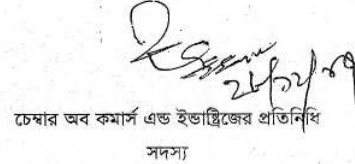 চেম্বার অব কমার্স এন্ড ইন্ডাষ্ট্রিজের প্রতিনিধি
সদস্য